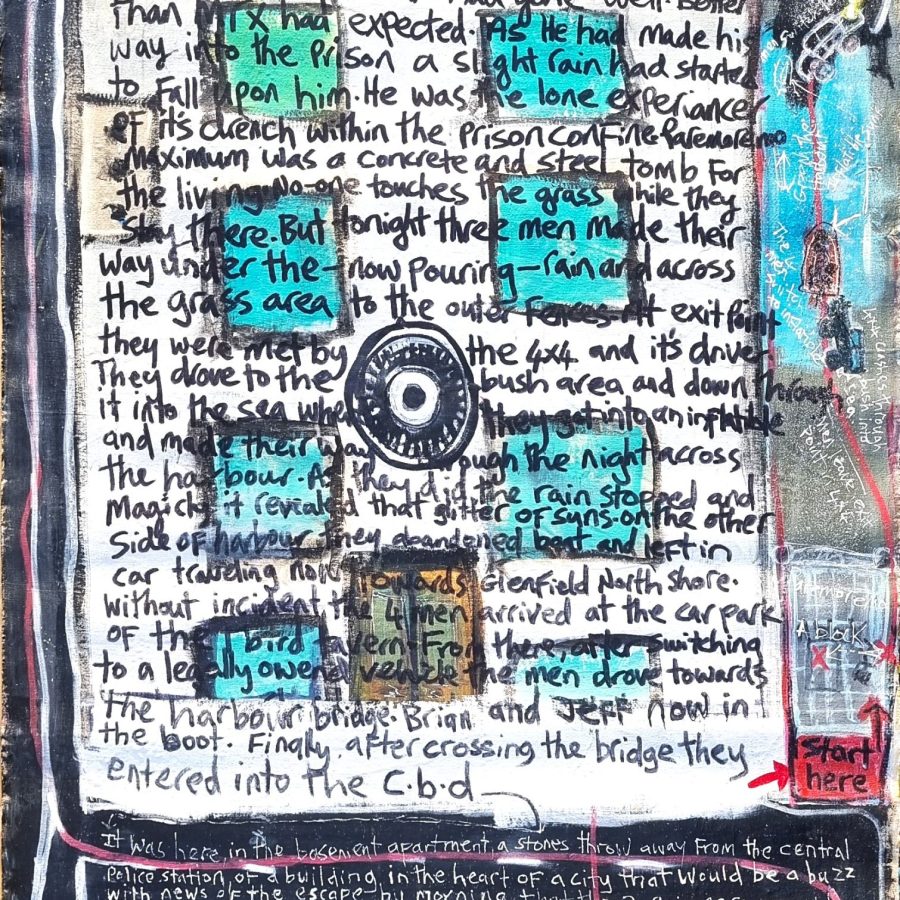 had gone well. Better
Than MTX had expected. As He had made his
way into the Prison a slight rain had started
to Fall upon him. He was the lone experiancer
of it's drench within the Prison confine. Paremoremo
Maximum was a concrete and steel tomb For
the living. No-one touches the grass while they
Stay there. But tonight three men made their
way under the - now pouring - rain and across
the grass area to the outer Fences. At exit Point
they were met by the 4x4 and it's driver.
They drove to the bush area and down through
it into the sea where they got into an inflatible
and made their way through the night across
the harbour. As they did the rain stopped and
Magicly it revealed that glitter of suns. on the other
Side of harbour they abandoned boat and left in
car traveling now towards Glenfield North Shore.
without incident the 4 men arrived at the car park
of the T bird tavern. From there, after switching
to a legally owened vehicle the men drove towards
the harbour bridge. Brian and Jeff now in
the boot. Finally after crossing the bridge they
entered into the C.b.d
It was here, in the basement apartment, a stones throw away From the central
Police station, of a building in the heart of a city that would be a buzz
with news of the escape by morning that the
A block
Start
here